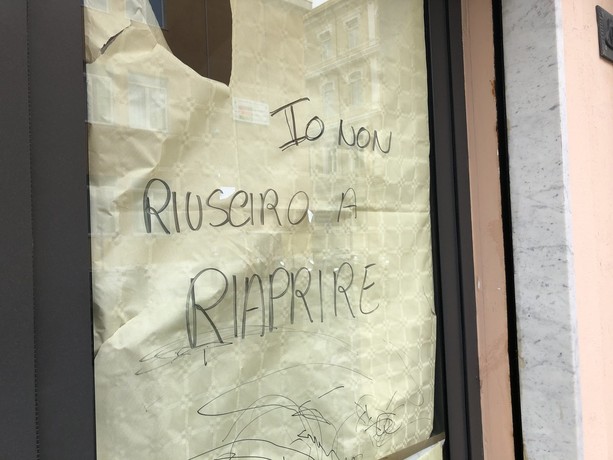 Io NON
RIUSCIRO A
RIAPRIRE